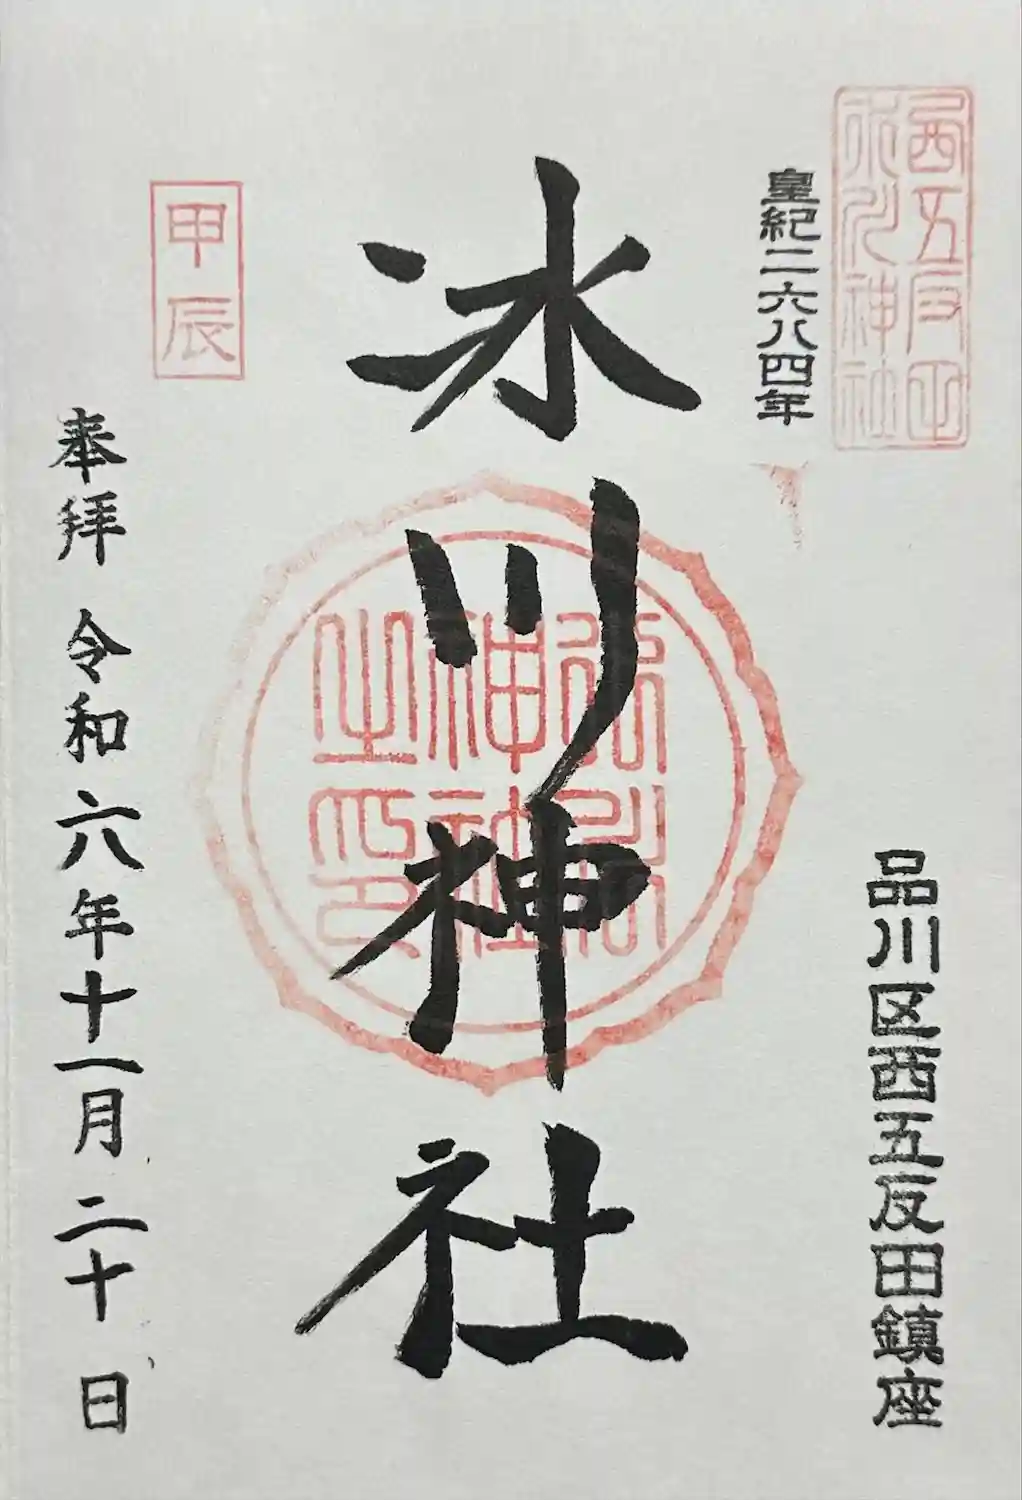 西五反田
氷川神社
皇紀二六八四年
品川区西五反田鎮座
氷川神社
氷川
神社
之印
甲辰
奉拝 令和六年十一月二十日